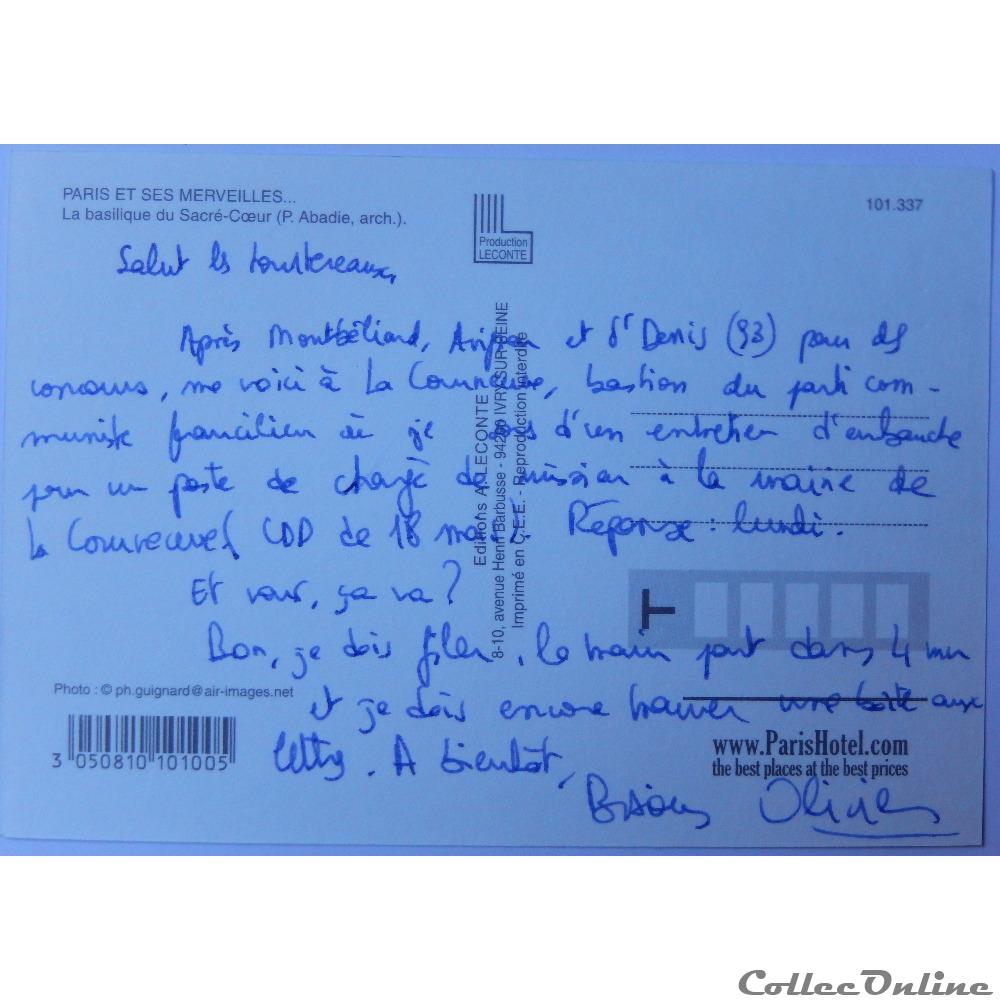 PARIS ET SES MERVEILLES...
La basilique du Sacré-Cœur (P. Abadie, arch.).
101.337
Production
LECONTE
Salut les tourtereaux,
Après Montbéliard, Avignon et St Denis (93) pour des
concours, me voici à La Courneuve, bastion du parti com-
muniste francilien où je sors d'un entretien d'embauche
pour un poste de chargé de mission à la mairie de
la Courneuve CDD de 18 mois. Réponse : lundi.
Et vous, ça va ?
Bon, je dois filer, le train part dans 4 mn
et je dois encore trouver une boîte aux
lettres. A bientôt,
Bisous Olivier
Editions A. LECONTE
8-10, avenue Henri Barbusse - 94200 IVRY-SUR-SEINE
Imprimé en C.E.E. - Reproduction interdite
T
Photo : © ph.guignard@air-images.net
3 050810 101005
www.ParisHotel.com
the best places at the best prices
CollecOnline